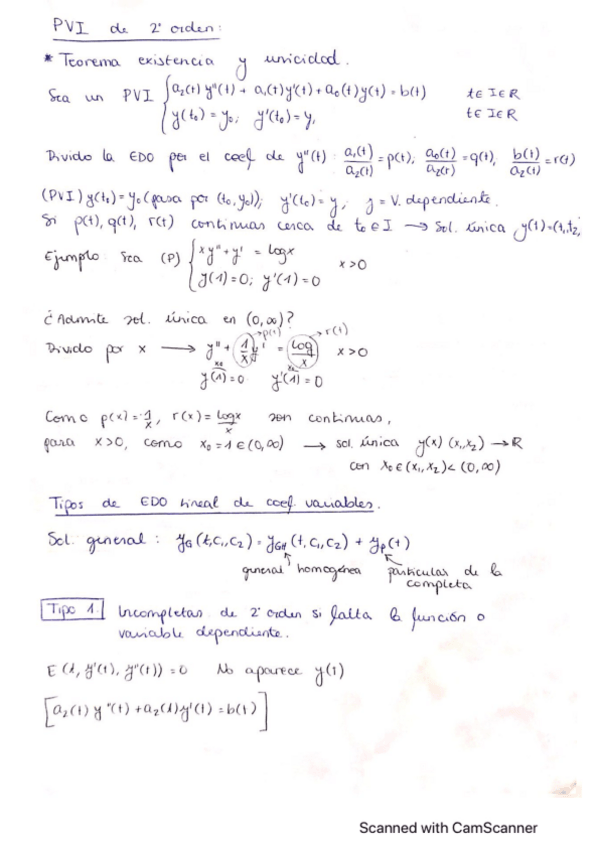 PVI de 2º orden:
* Teorema existencia y unicidad.
Sea un PVI { a₂(t) y''(t) + a₁(t)y'(t) + a₀(t)y(t) = b(t) t ∈ I ∈ R
y(t₀) = y₀; y'(t₀) = y₁ t ∈ I ∈ R
Divido la EDO por el coef de y''(t): a₁(t)/a₂(t) = p(t); a₀(t)/a₂(t) = q(t), b(t)/a₂(t) = r(t)
(PVI) y(t₀) = y₀ (pasa por (t₀, y₀)); y'(t₀) = y, y = V. dependiente.
Si p(t), q(t), r(t) continuas cerca de t₀ ∈ I → Sol. única y(t) = (t₁, t₂
Ejemplo Sea (P) { xy'' + y' = log x x > 0
y(1) = 0; y'(1) = 0
¿Admite sol. única en (0, ∞)?
Divido por x → y'' + (1/x) y' = (log/x) x > 0
p(t) r(t)
y(1) = 0 y'(1) = 0
Como p(x) = 1/x, r(x) = log x/x son continuas,
para x > 0, como x₀ = 1 ∈ (0, ∞) → sol. única y(x) (x₁, x₂) → R
con x₀ ∈ (x₁, x₂) < (0, ∞)
Tipos de EDO lineal de coef. variables.
Sol. general: y_G (t, c₁, c₂) = y_GH (t, c₁, c₂) + y_p (t)
general homogénea particular de la completa
Tipo 1. Incompletas de 2º orden si falta la función o
variable dependiente.
E (t, y'(t), y''(t)) = 0 No aparece y(1)
[a₂(t) y''(t) + a₂(1) y'(t) = b(t)]
Scanned with CamScanner